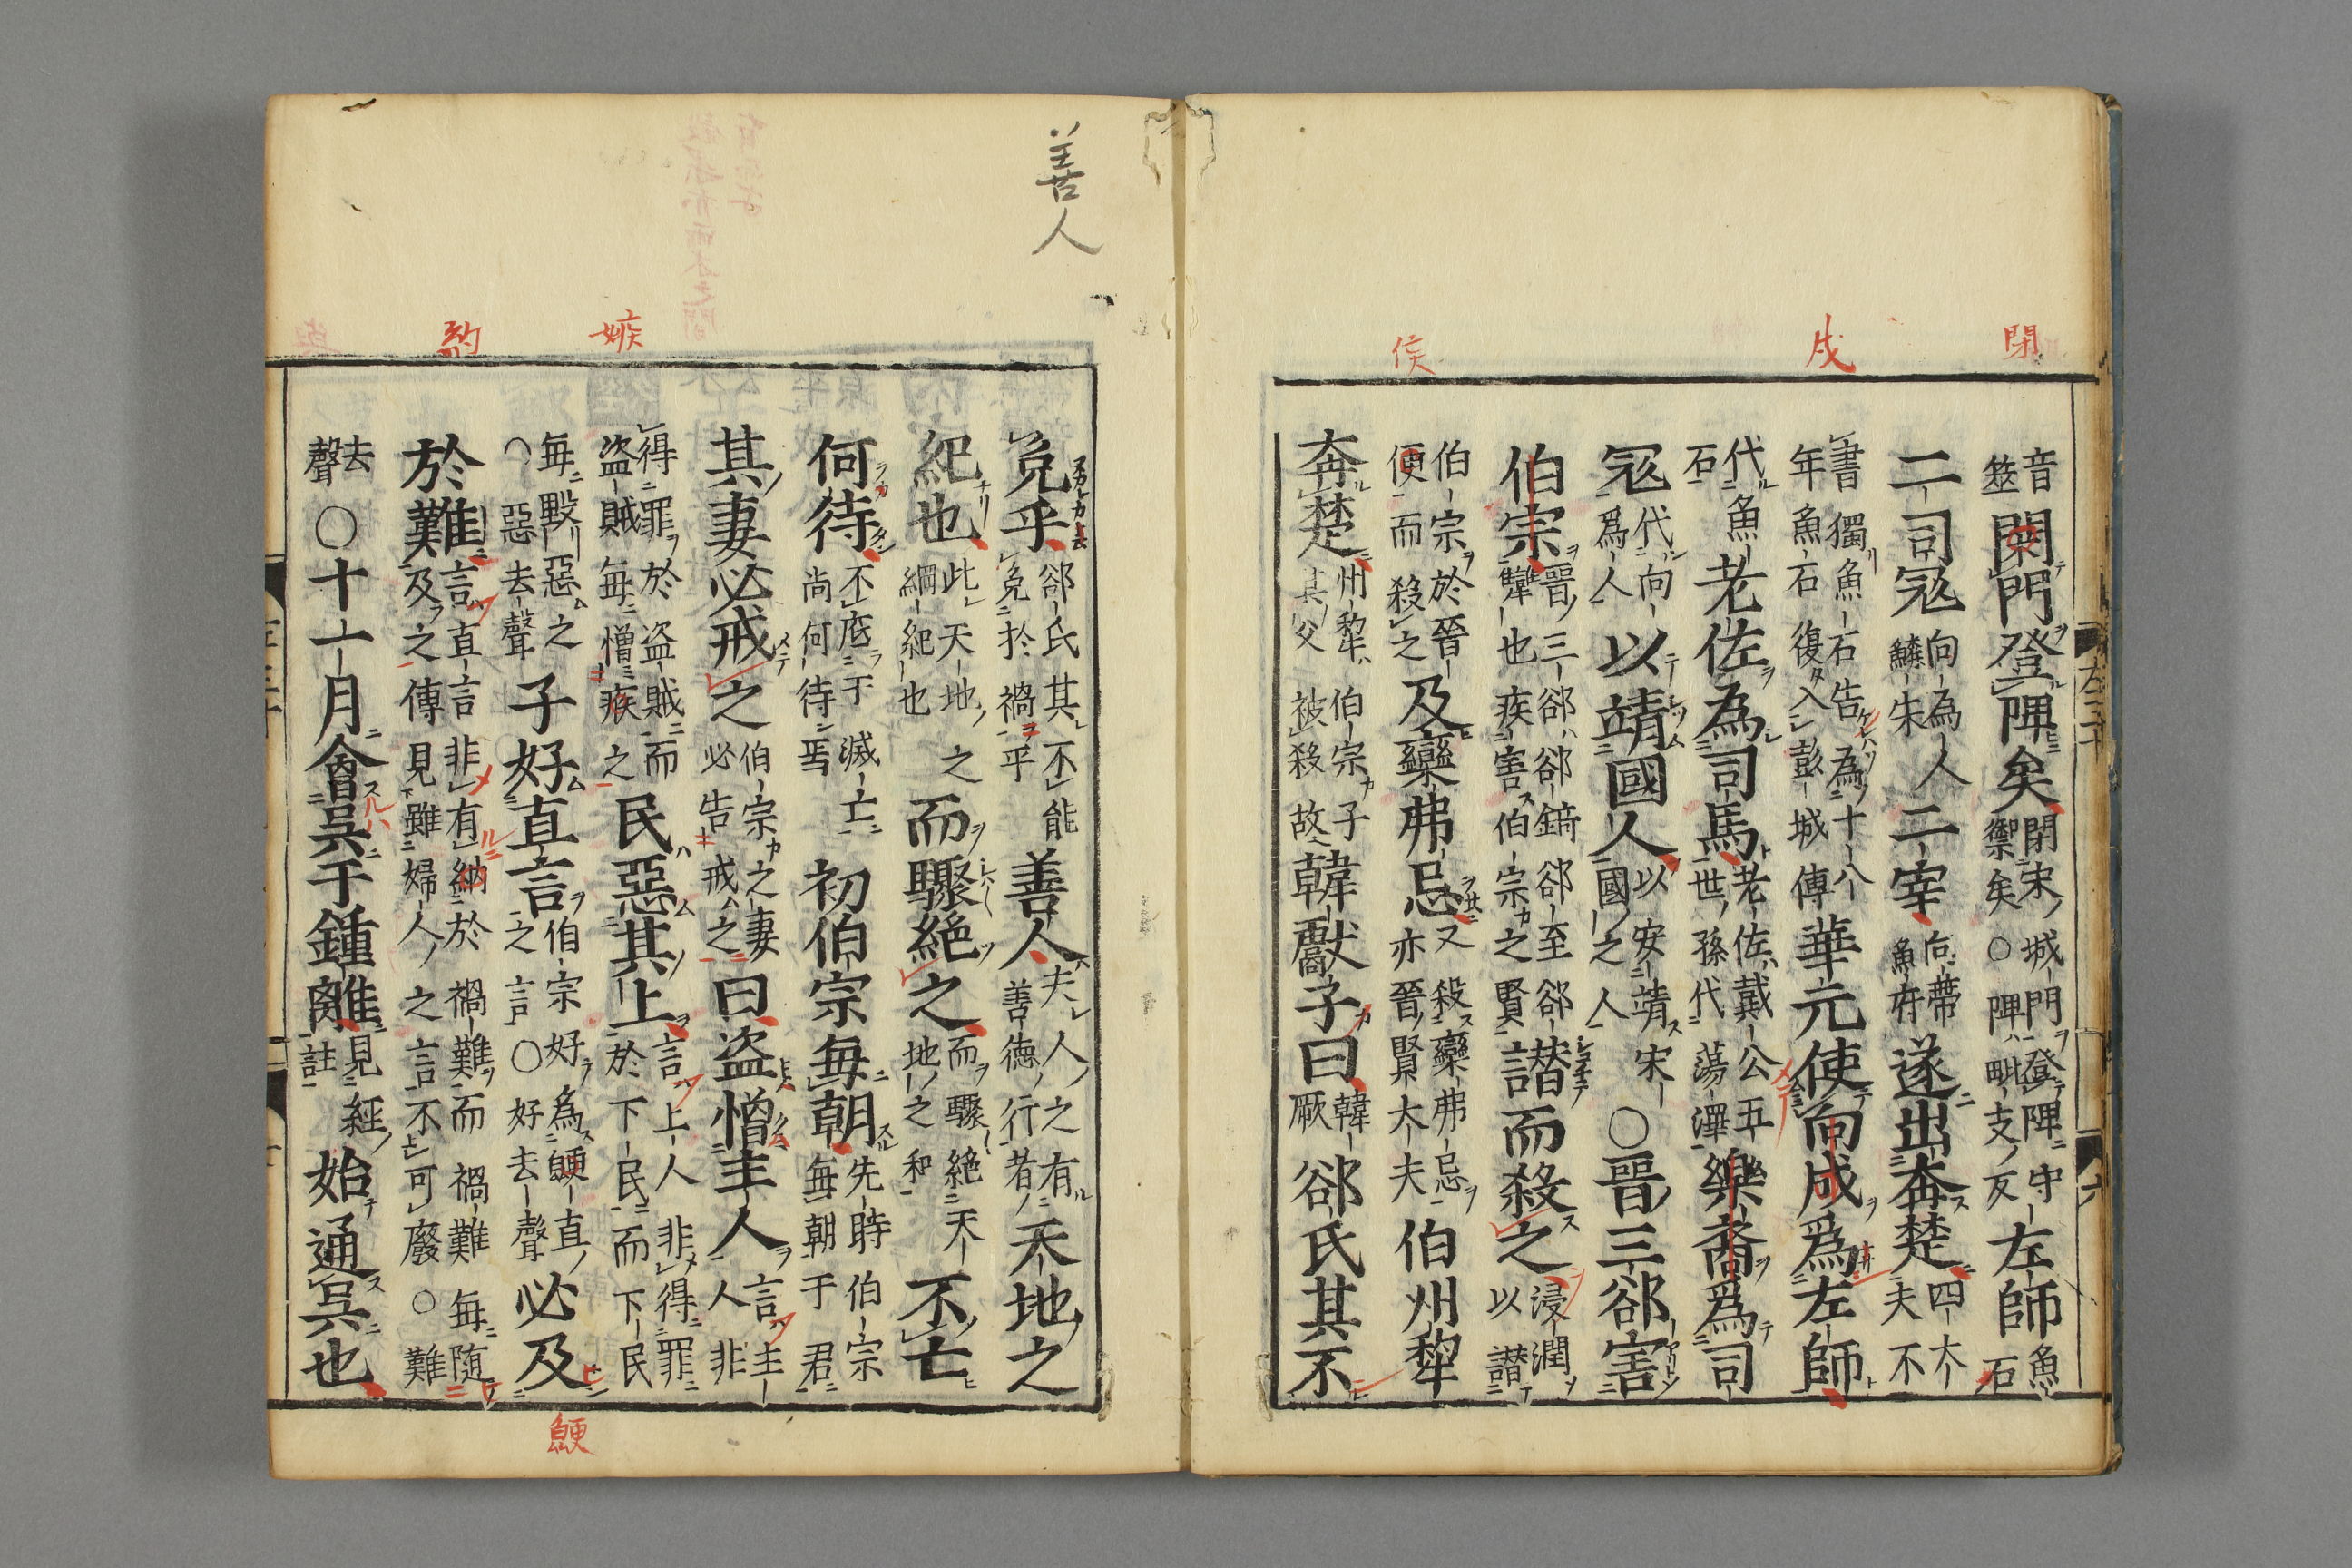 閉
戍
侯
音筮閉門登陴矣閉宋城門登陴守禦矣○陴毗支反左師魚石
二司冦向為人鱗朱二宰向帶魚府遂出奔楚四大夫不
書獨魚石告為十八年魚石復入彭城傳華元使向戍爲左師
代魚石老佐為司馬老佐戴公五世孫代蕩澤樂裔爲司
冦代向爲人以靖國人以安靖宋國之人○晉三郤害
伯宗晉三郤郤錡郤至郤犨也疾害伯宗之賢譖而殺之浸潤以譖
伯宗於晉便而殺之及欒弗忌又殺欒弗忌亦晉賢大夫伯州犂
奔楚州犂伯宗子其父被殺故韓獻子曰韓厥郤氏其不
善人
嫉
約
免乎郤氏其不能免於禍乎善人夫人之有善德行者天地之
紀也此天地之綱紀也而驟絶之而驟絶天地之和不亡
何待不底于滅亡尚何待焉初伯宗每朝先時伯宗每朝于君
其妻必戒之伯宗之妻必告戒之曰盗憎主人言主人非
得罪於盗賊而盗賊每憎疾之民惡其上言上人非得罪於下民而下民
每毀惡之○惡去聲子好直言伯宗好為鯁直之言○好去聲必及
於難言直言非有納於禍難而禍難每随及之傳見雖婦人之言不可廢○難
去聲○十一月會吳于鍾離見經註始通吳也
鯁